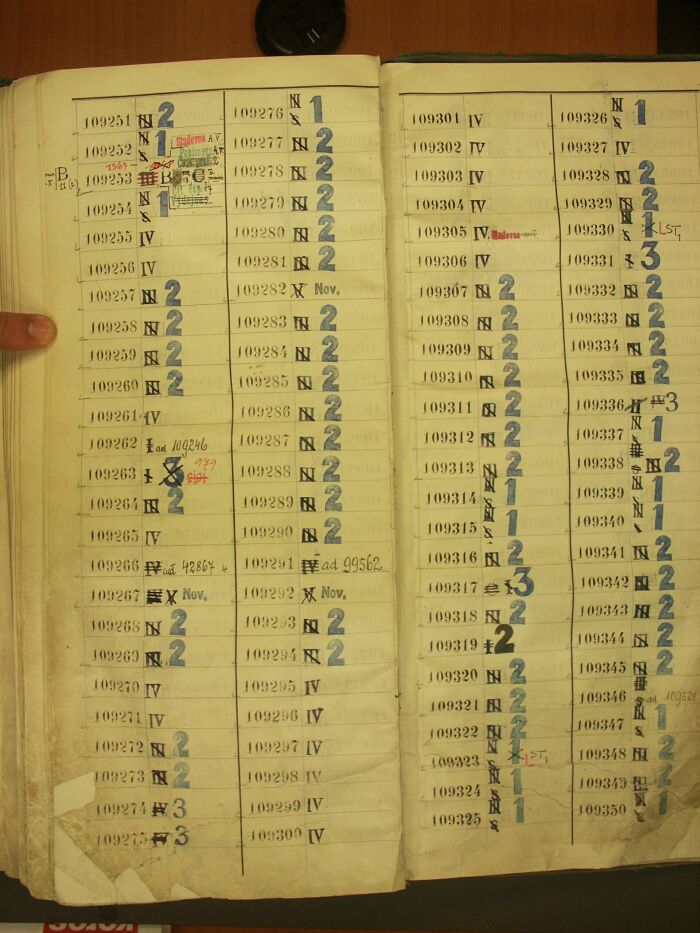 109251 N 2
109252 N s 1
Studovna
109253 III B C
109254 N s 1
109255 IV
109256 IV
109257 N 2
109258 N 2
109259 N 2
109260 N 2
109261 IV
109262 I ad 109246
109263 I 3 979
109264 N 2
109265 IV
109266 IV 42867
109267 V Nov.
109268 N 2
109269 N 2
109270 IV
109271 IV
109272 N 2
109273 N 2
109274 IV 3
109275 IV 3
109276 N s 1
109277 N 2
109278 N 2
109279 N 2
109280 N 2
109281 N 2
109282 V Nov.
109283 N 2
109284 N 2
109285 N 2
109286 N 2
109287 N 2
109288 N 2
109289 N 2
109290 N 2
109291 IV ad 99562
109292 V Nov.
109293 N 2
109294 N 2
109295 IV
109296 IV
109297 IV
109298 IV
109299 IV
109300 IV
109301 IV
109302 IV
109303 IV
109304 IV
109305 IV Studovna
109306 IV
109307 N 2
109308 N 2
109309 N 2
109310 N 2
109311 N 2
109312 N 2
109313 N 2
109314 N s 1
109315 N s 1
109316 N 2
109317 I 3
109318 N 2
109319 I 2
109320 N 2
109321 N 2
109322 N 2
109323 N s 1 LST,
109324 N s 1
109325 N s 1
109326 N s 1
109327 IV
109328 N 2
109329 N 2
109330 N s 1 LST,
109331 I 3
109332 N 2
109333 N 2
109334 N 2
109335 N 2
109336 N IV 3
109337 N s 1
109338 III N 2
109339 N s 1
109340 N 1
109341 N 2
109342 N 2
109343 N 2
109344 N 2
109345 N 2
109346 III ad 109521
109347 N s 1
109348 N 2
109349 N 2
109350 N s 1